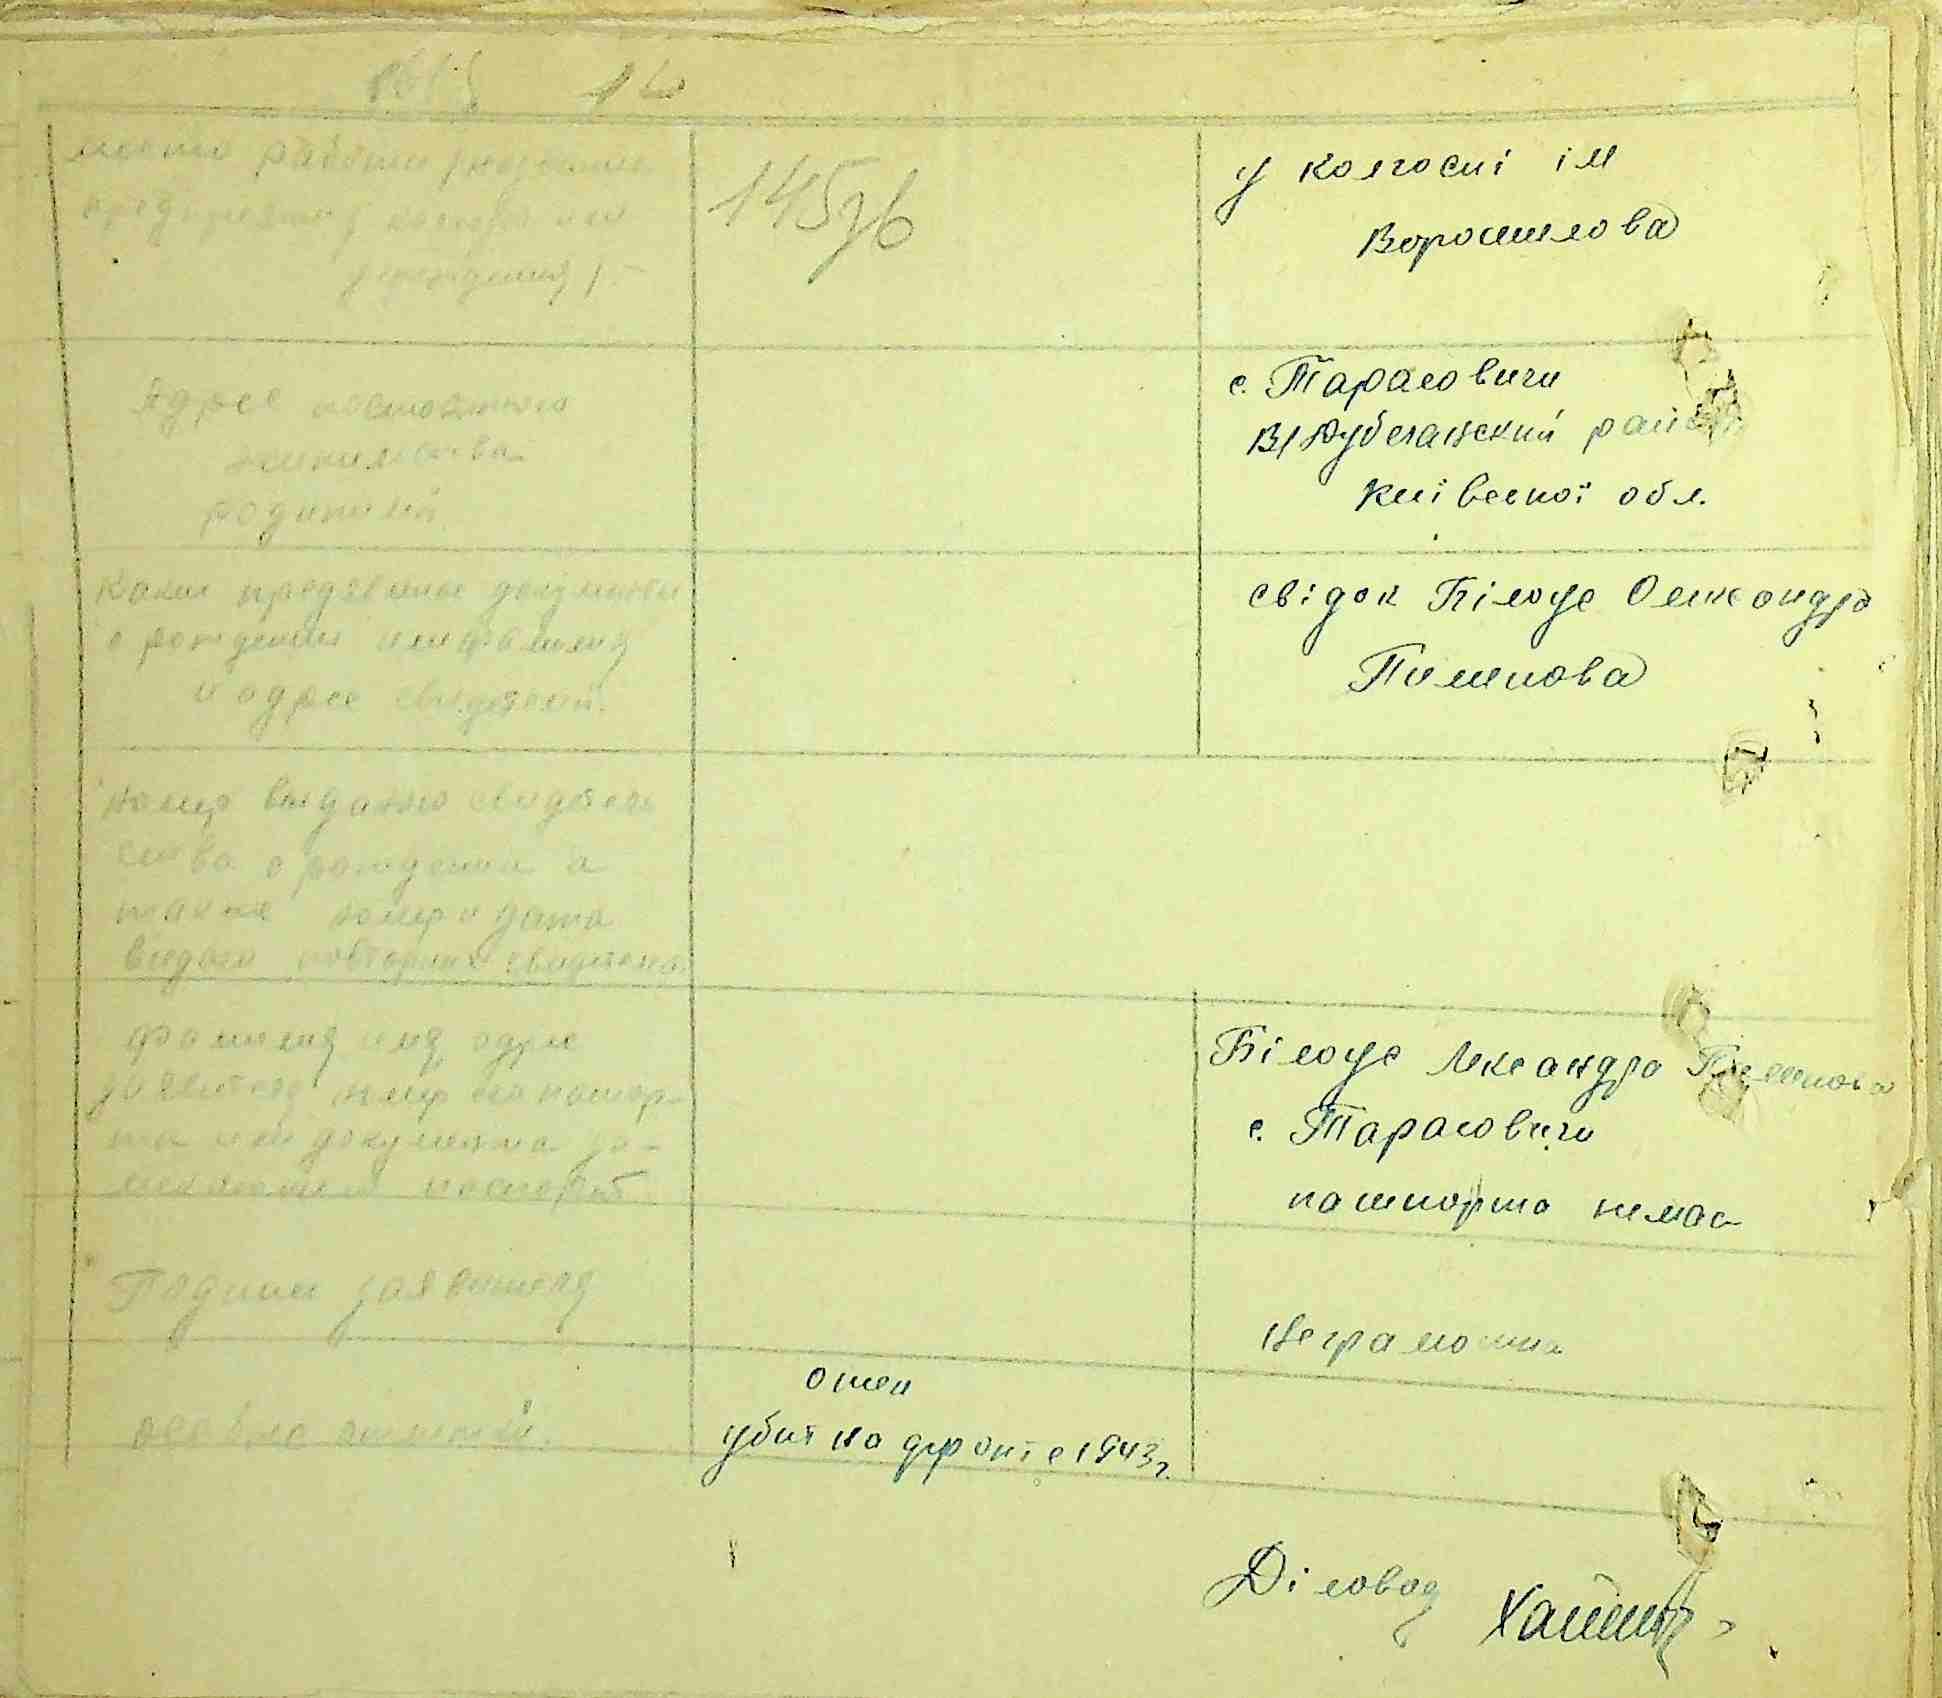 место работы (название
предприятия, колхоза или
учреждения).-
145зв
у колгоспі ім
Ворошилова
Адрес постоянного
жительства
родителей
с. Тарасовичи
В/Дубечанский район
Київської обл.
Какие предявлены документы
о рождении или фамилия
и адрес свидетелей.
свідок Білоус Олександра
Пименова
Номер выданого свидетель
ства о рождении а
также номер и дата
выдачи повторных свидетельс.
Фамилия имя адрес
заявителя номер его паспор-
та или документа за-
меняющего паспорт
Білоус Лександра Пименова
с. Тарасовичи
пашпорта немає
Подпись заявителя
Неграмотна
особые отметки.
отец
убит на фронте 1943 г.
Діловод